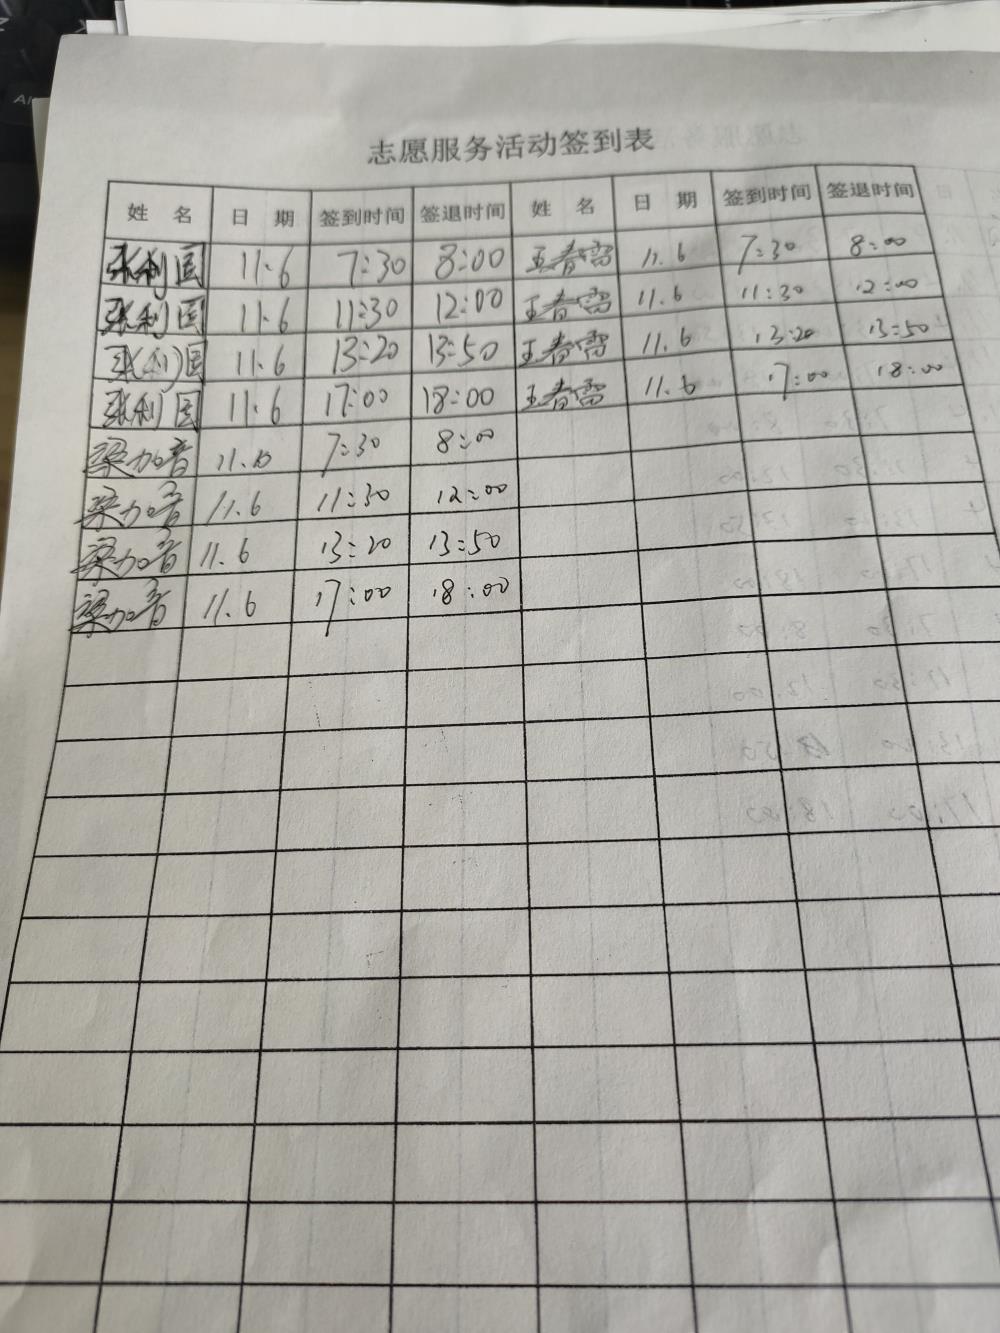 志愿服务活动签到表
姓 名 日 期 签到时间 签退时间 姓 名 日 期 签到时间 签退时间
张利国 11.6 7:30 8:00 王春雷 11.6 7:30 8:00
张利国 11.6 11:30 12:00 王春雷 11.6 11:30 12:00
张利国 11.6 13:20 13:50 王春雷 11.6 13:20 13:50
张利国 11.6 17:00 18:00 王春雷 11.6 17:00 18:00
梁加音 11.6 7:30 8:00
梁加音 11.6 11:30 12:00
梁加音 11.6 13:20 13:50
梁加音 11.6 17:00 18:00